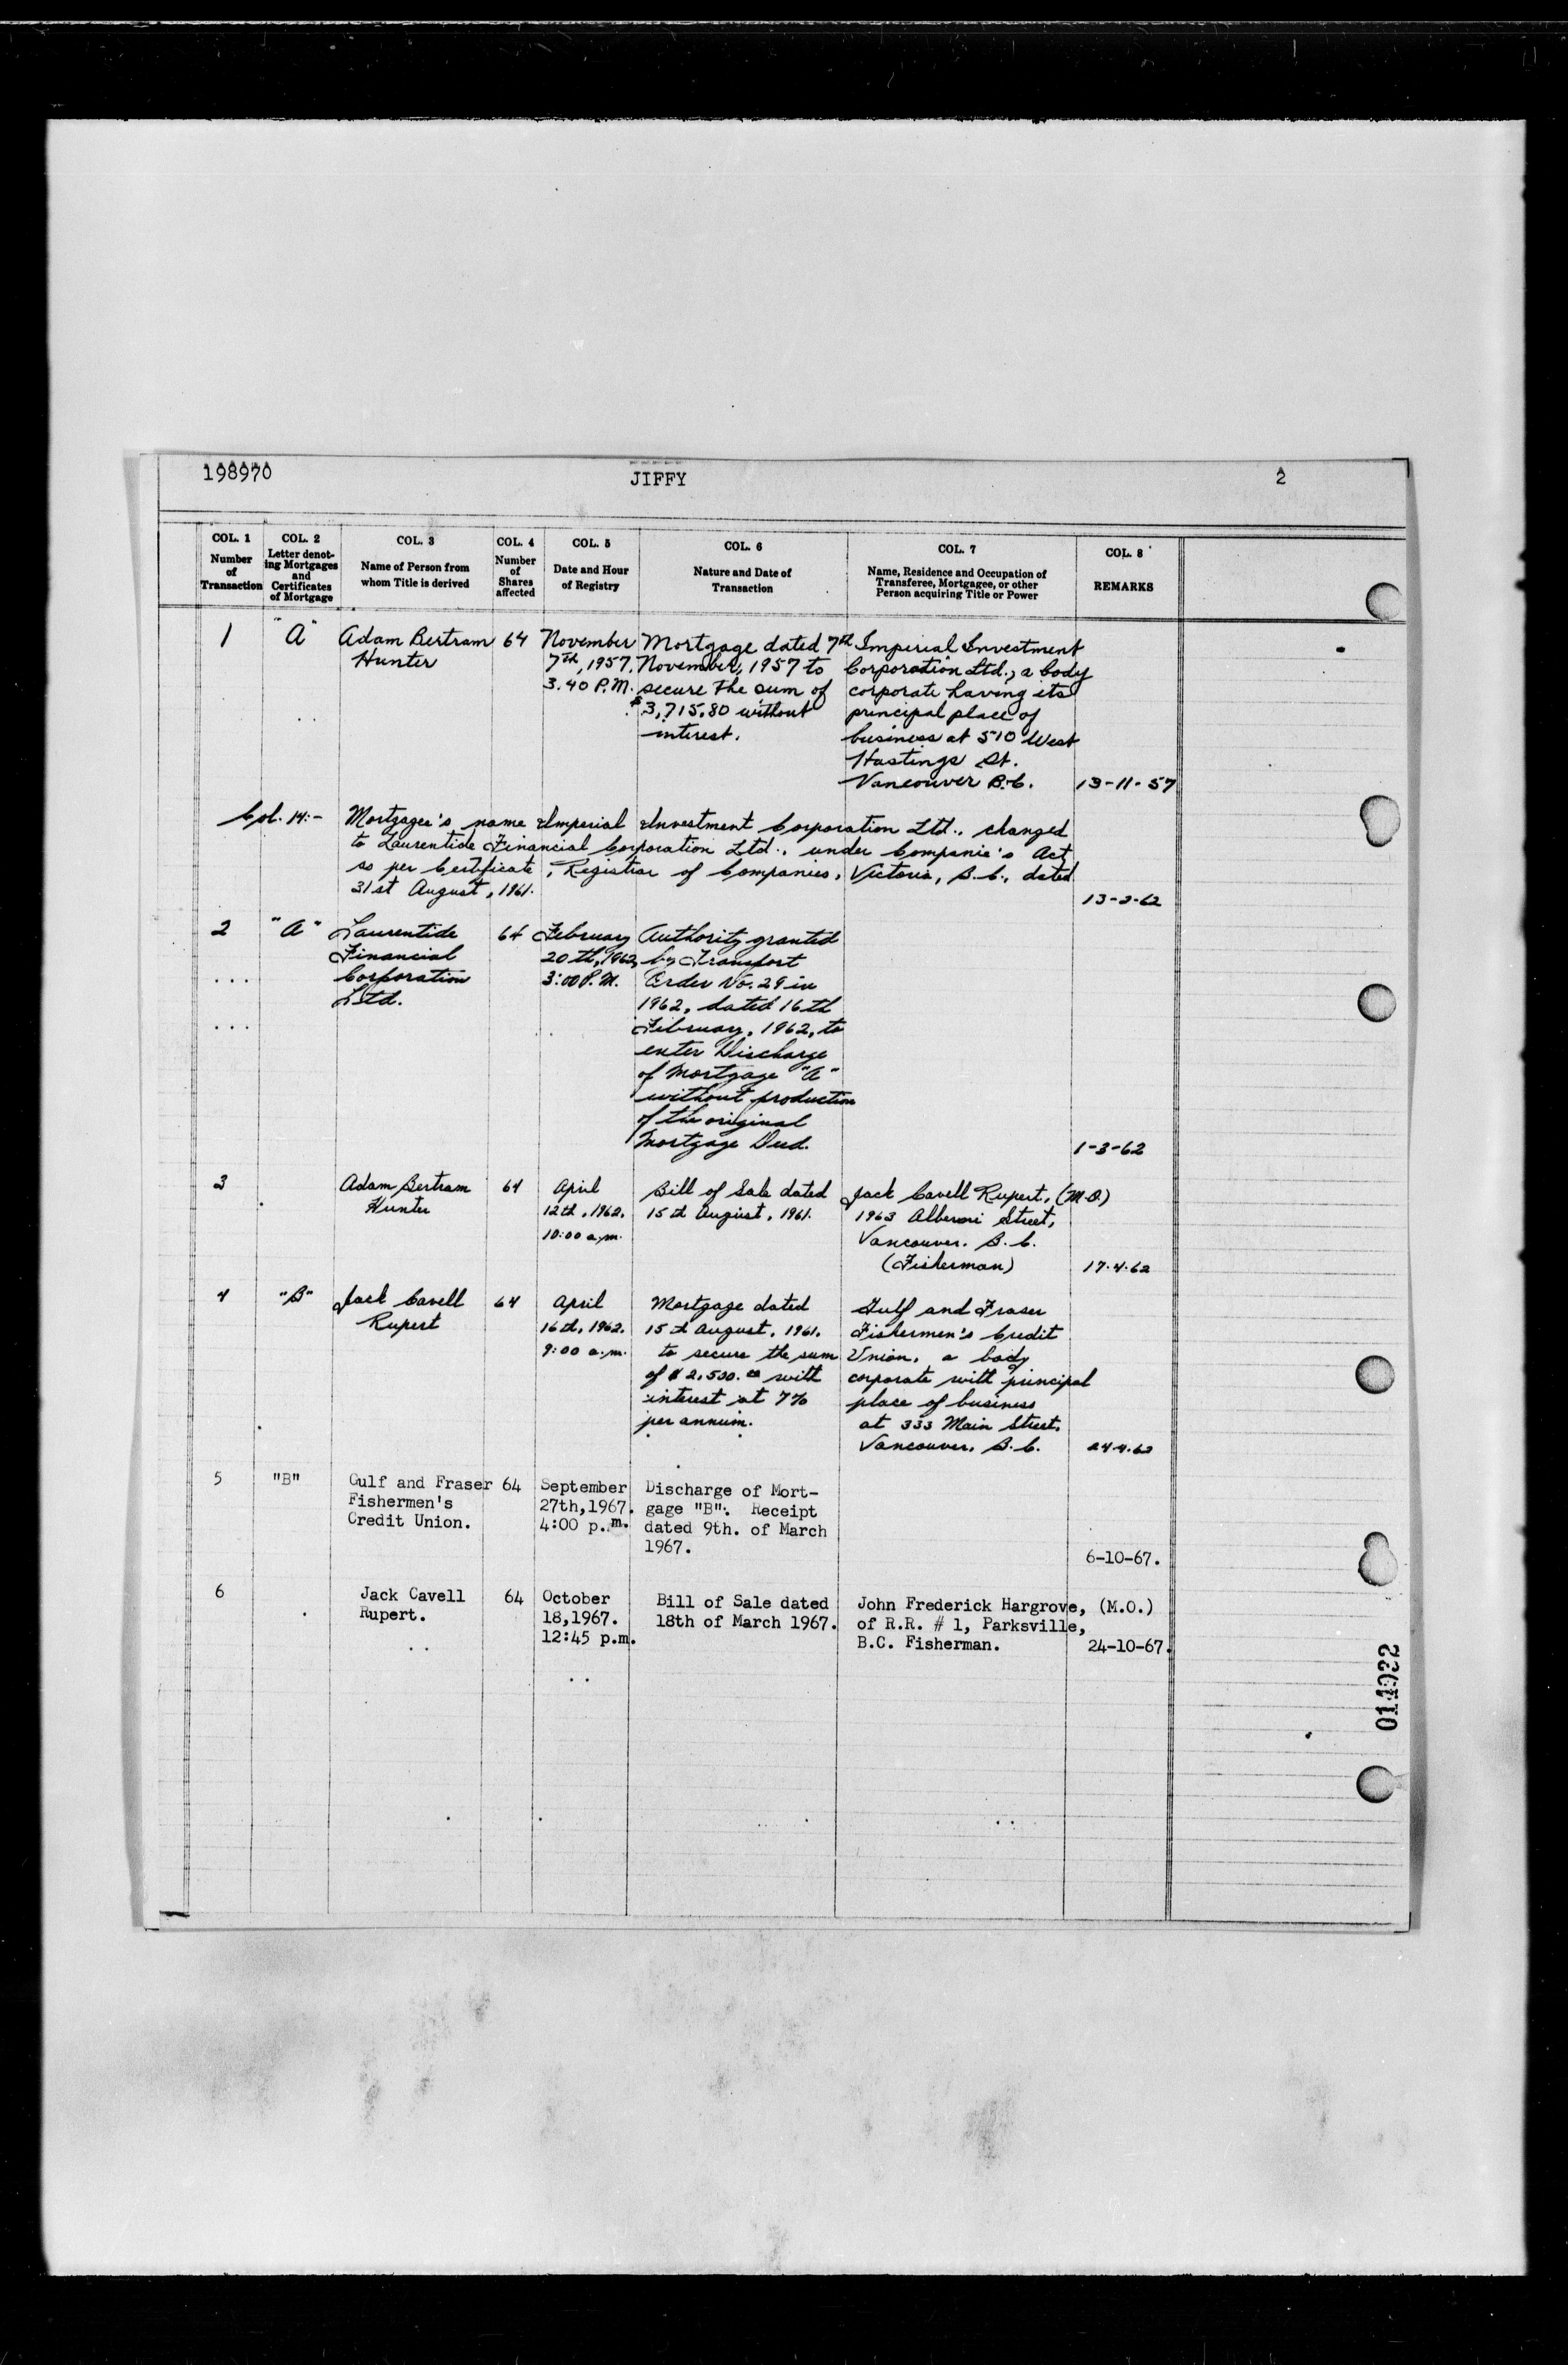 198970 JIFFY 2
COL. 1 COL. 2 COL. 3 COL. 4 COL. 5 COL. 6 COL. 7 COL. 8
Number of Transaction
Letter denot-
ing Mortgages
and
Certificates
of Mortgage
Name of Person from
whom Title is derived
Number
of
Shares
affected
Date and Hour
of Registry
Nature and Date of
Transaction
Name, Residence and Occupation of
Transferee, Mortgagee, or other
Person acquiring Title or Power
REMARKS
1 "A" Adam Bertram 64 November Mortgage dated 7th Imperial Investment
Hunter 7th, 1957. November, 1957 to Corporation Ltd., a body
3.40 P.M. secure the sum of corporate having its
$3,715.80 without principal place of
interest. business at 510 West
Hastings St.
Vancouver B.C. 13-11-57
Col. 14:- Mortgagee's name Imperial Investment Corporation Ltd., changed
to Laurentide Financial Corporation Ltd., under Companie's Act,
as per Certificate, Registrar of Companies, Victoria, B.C., dated
31st August, 1961.
13-2-62
2 "A" Laurentide 64 February Authority granted
Financial 20th, 1962, by Transport
Corporation 3:00 P.M. Order No. 29 in
Ltd. 1962, dated 16th
February, 1962, to
enter Discharge
of Mortgage "A"
without production
of the original
Mortgage Deed. 1-3-62
3 Adam Bertram 64 April Bill of Sale dated Jack Cavell Rupert, (M.O)
Hunter 12th, 1962. 15th August, 1961. 1963 Alberni Street,
10:00 a.m. Vancouver. B.C.
(Fisherman) 17.4.62
4 "B" Jack Cavell 64 April Mortgage dated Gulf and Fraser
Rupert 16th, 1962. 15th August, 1961. Fishermen's Credit
9:00 a.m. to secure the sum Union, a body
of $2,500.00 with corporate with principal
interest at 7% place of business
per annum. at 333 Main Street,
Vancouver, B.C. 24.4.62
5 "B" Gulf and Fraser 64 September Discharge of Mort-
Fishermen's 27th,1967. gage "B". Receipt
Credit Union. 4:00 p.m. dated 9th. of March
1967.
6-10-67.
6 Jack Cavell 64 October Bill of Sale dated John Frederick Hargrove, (M.O.)
Rupert. 18,1967. 18th of March 1967. of R.R. # 1, Parksville,
12:45 p.m. B.C. Fisherman. 24-10-67.